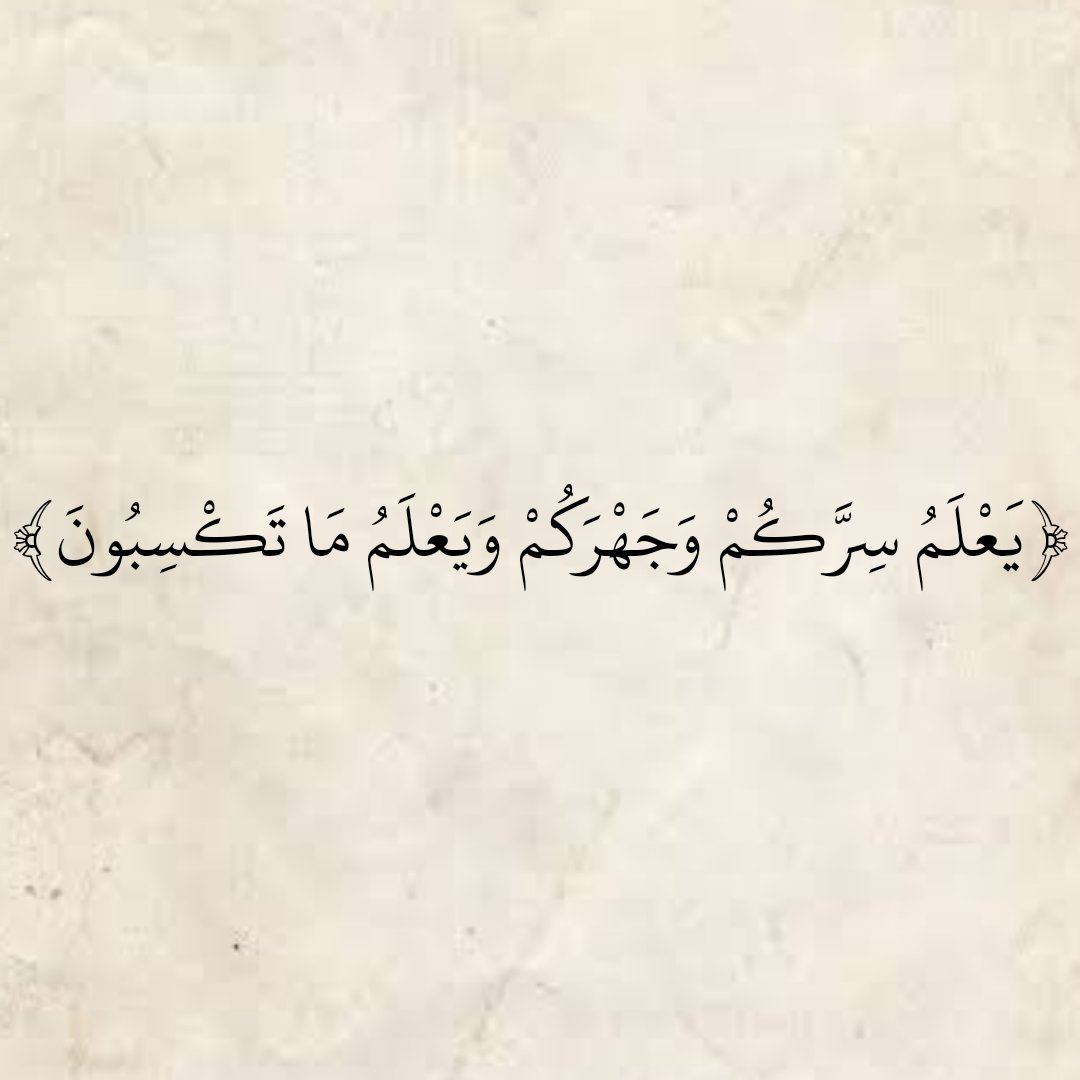 ﴿يَعْلَمُ سِرَّكُمْ وَجَهْرَكُمْ وَيَعْلَمُ مَا تَكْسِبُونَ﴾